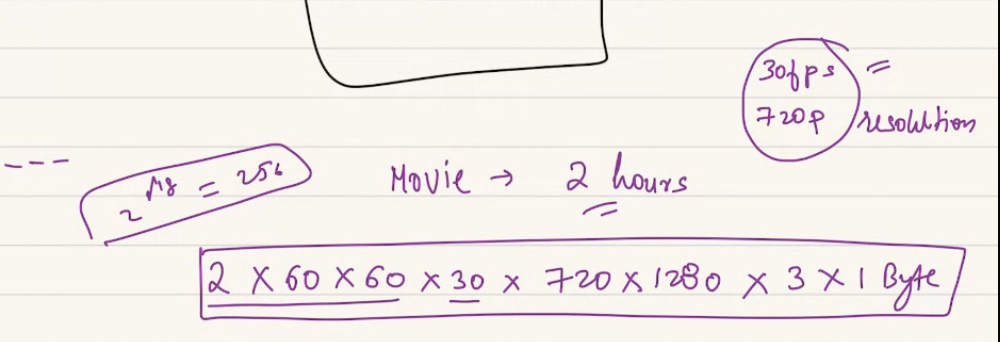 30fps =
720p resolution
---
2^8 = 256
Movie → 2 hours
2 X 60 X 60 X 30 X 720 X 1280 X 3 X 1 Byte